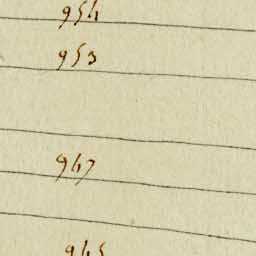 954
953
947
945